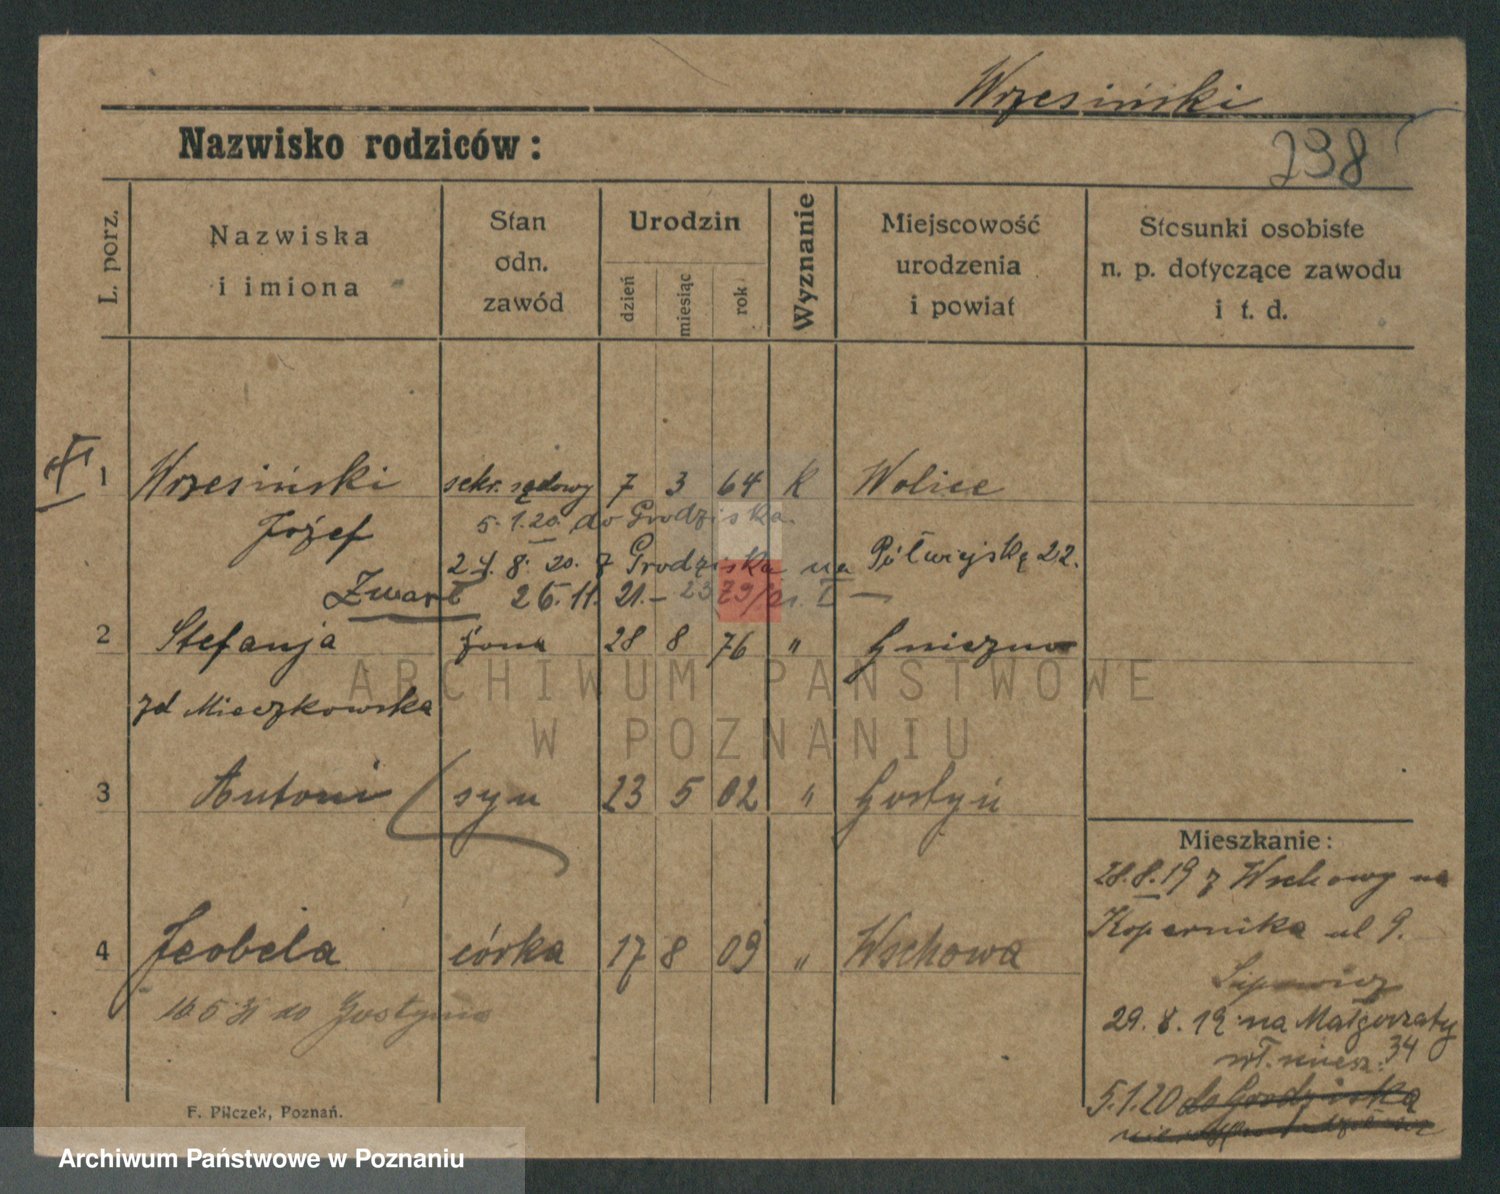 Wrzesiński
Nazwisko rodziców:
238
L. porz.
Nazwiska
i imiona
Stan
odn.
zawód
Urodzin
dzień
miesiąc
rok
Wyznanie
Miejscowość
urodzenia
i powiat
Stosunki osobiste
n. p. dotyczące zawodu
i t. d.
1 Wrzesiński sekr. sądowy 7 3 64 K Wolice
5.1.20. do Grodziska.
Józef
24. 8. 20. z Grodziska na Półwiejską 22.
Zmarł 26.11.21. –
2 Stefanja żona 28 8 76 " Gniezno
zd Mieczkowska
ARCHIWUM PAŃSTWOWE
W POZNANIU
3 Antoni syn 23 5 02 " Gostyń
Mieszkanie:
28.8.19 z Wschowy na
Kopernika ul 9.
4 córka 17 8 09 " Wschowa
29. 8. 19 na Małgorzaty
34
wł. miesz.
16 5 31 do Gostynia
5.1.20 do Grodziska
F. Pilczek, Poznań.
Archiwum Państwowe w Poznaniu